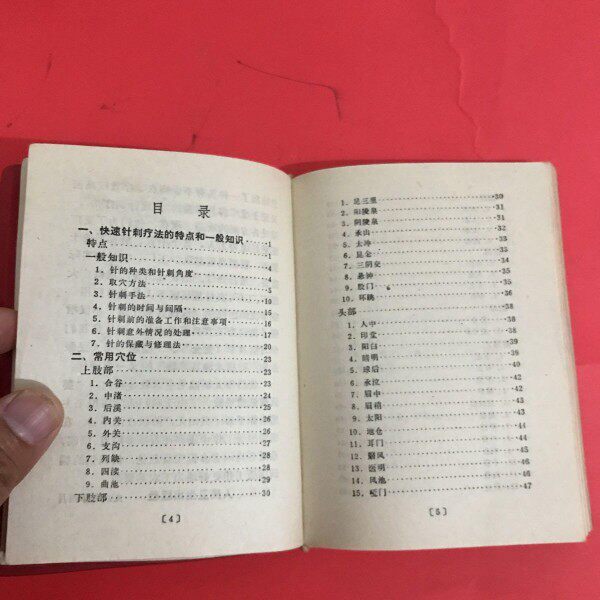 目录
一、快速针刺疗法的特点和一般知识……1
特点……1
一般知识……4
1．针的种类和针刺角度……4
2．取穴方法……5
3．针刺手法……10
4．针刺的时间与间隔……15
5．针刺前的准备工作和注意事项……16
6．针刺意外情况的处理……18
7．针的保藏与修理法……20
二、常用穴位……23
上肢部……23
1．合谷……23
2．中渚……24
3．后溪……25
4．内关……26
5．外关……26
6．支沟……27
7．列缺……28
8．四渎……28
9．曲池……29
下肢部……30
〔4〕
1．足三里……30
2．阳陵泉……31
3．阴陵泉……31
4．承山……32
5．太冲……33
6．昆仑……34
7．三阴交……34
8．悬钟……35
9．殷门……36
10．环跳……36
头部……38
1．人中……38
2．印堂……38
3．阳白……39
4．睛明……39
5．球后……40
6．承泣……42
7．眉中……42
8．眉梢……42
9．太阳……43
10．地仓……43
11．耳门……44
12．翳风……45
13．医明……46
14．风池……46
15．哑门……47
〔5〕